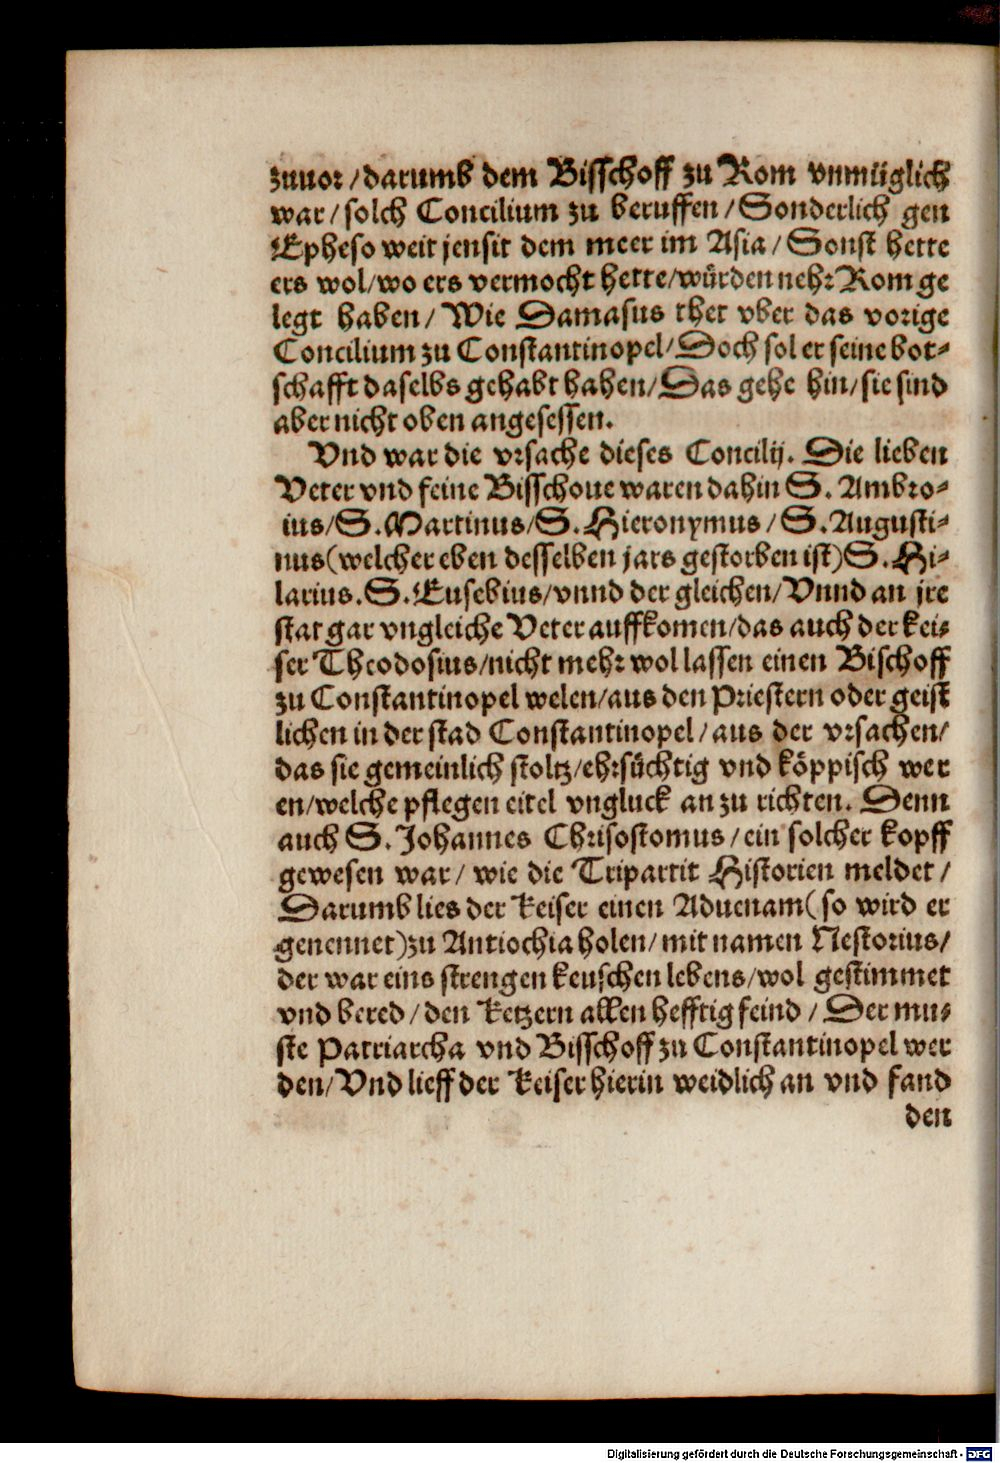 zuuor/darumb dem Bisschoff zu Rom vnmüglich
war/solch Concilium zu beruffen/Sonderlich gen
Epheso weit jensit dem meer im Asia/Sonst hette
ers wol/wo ers vermocht hette/würden nehr Rom ge
legt haben/Wie Damasus thet vber das vorige
Concilium zu Constantinopel/Doch sol er seine bot-
schafft daselbs gehabt hahen/Das gehe hin/sie sind
aber nicht oben angesessen.
Vnd war die vrsache dieses Concilij. Die lieben
Veter vnd feine Bisschoue waren dahin S. Ambro-
ius/S.Martinus/S.Hieronymus/S.Augusti-
nus(welcher eben desselben jars gestorben ist)S.Hi-
larius.S.Eusebius/vnnd der gleichen/Vnnd an jre
stat gar vngleiche Veter auffkomen/das auch der kei-
ser Theodosius/nicht mehr wol lassen einen Bischoff
zu Constantinopel welen/aus den Priestern oder geist
lichen in der stad Constantinopel/aus der vrsachen/
das sie gemeinlich stoltz/ehrsüchtig vnd köppisch wer
en/welche pflegen eitel vngluck an zu richten. Denn
auch S.Johannes Chrisostomus/ein solcher kopff
gewesen war/wie die Tripartit Historien meldet/
Darumb lies der keiser einen Aduenam(so wird er
genennet)zu Antiochia holen/mit namen Nestorius/
der war eins strengen keuschen lebens/wol gestimmet
vnd bered/den Ketzern allen hefftig feind/Der mu-
ste Patriarcha vnd Bisschoff zu Constantinopel wer
den/Vnd lieff der keiser hierin weidlich an vnd fand
den
Digitalisierung gefördert durch die Deutsche Forschungsgemeinschaft - DFG